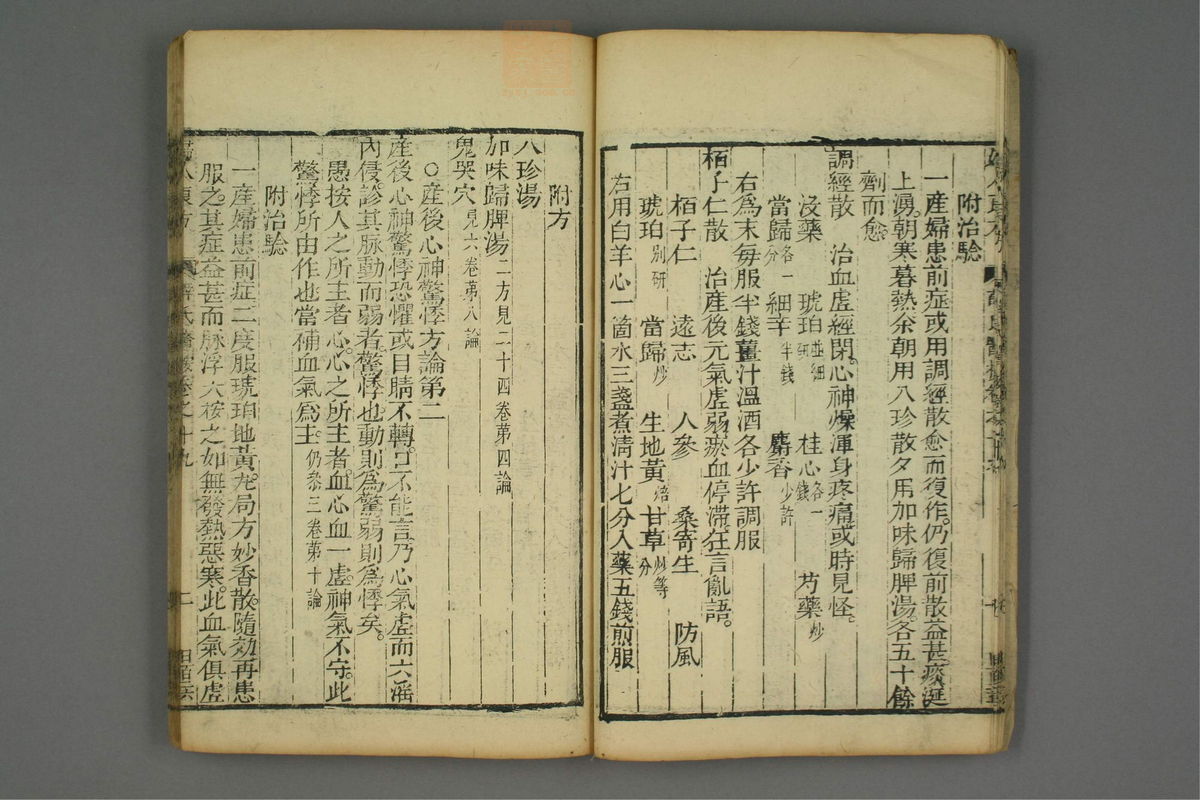 附治驗
一產婦患前症或用調經散愈而復作仍復前散益甚痰涎
上湧朝寒暮熱余朝用八珍散夕用加味歸脾湯各五十餘
劑而愈
調經散 治血虛經閉心神燥渾身疼痛或時見怪
沒藥 琥珀並細研 桂心各一錢 芍藥炒
當歸各一分 細辛半錢 麝香少許
右為末每服半錢薑汁溫酒各少許調服
栢子仁散 治產後元氣虛弱瘀血停滯狂言亂語
栢子仁 遠志 人參 桑寄生 防風
琥珀別研 當歸炒 生地黃焙 甘草炒等分
右用白羊心一箇水三盞煮清汁七分入藥五錢煎服
附方
八珍湯
加味歸脾湯二方見二十四卷第四論
鬼哭穴見六卷第八論
○產後心神驚悸方論第二
產後心神驚悸恐懼或目睛不轉口不能言乃心氣虛而六淫
內侵診其脉動而弱者驚悸也動則為驚弱則為悸矣
愚按人之所主者心心之所主者血心血一虛神氣不守此
驚悸所由作也當補血氣為主仍參三卷第十論
附治驗
一產婦患前症二度服琥珀地黃丸局方妙香散隨効再患
服之其症益甚而脉浮大按之如無發熱惡寒此血氣俱虛